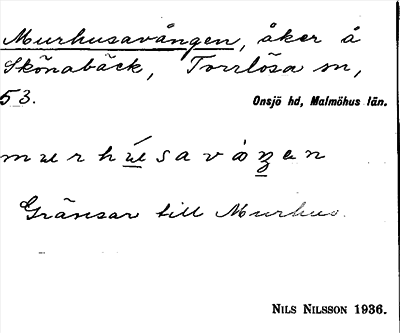 Murhusavången, åker å
Skönabäck, Torrlösa sn,
53.
Onsjö hd, Malmöhus län.
murhú̲savåŋ̲en
Gränsar till Murhus.
NILS NILSSON 1936.